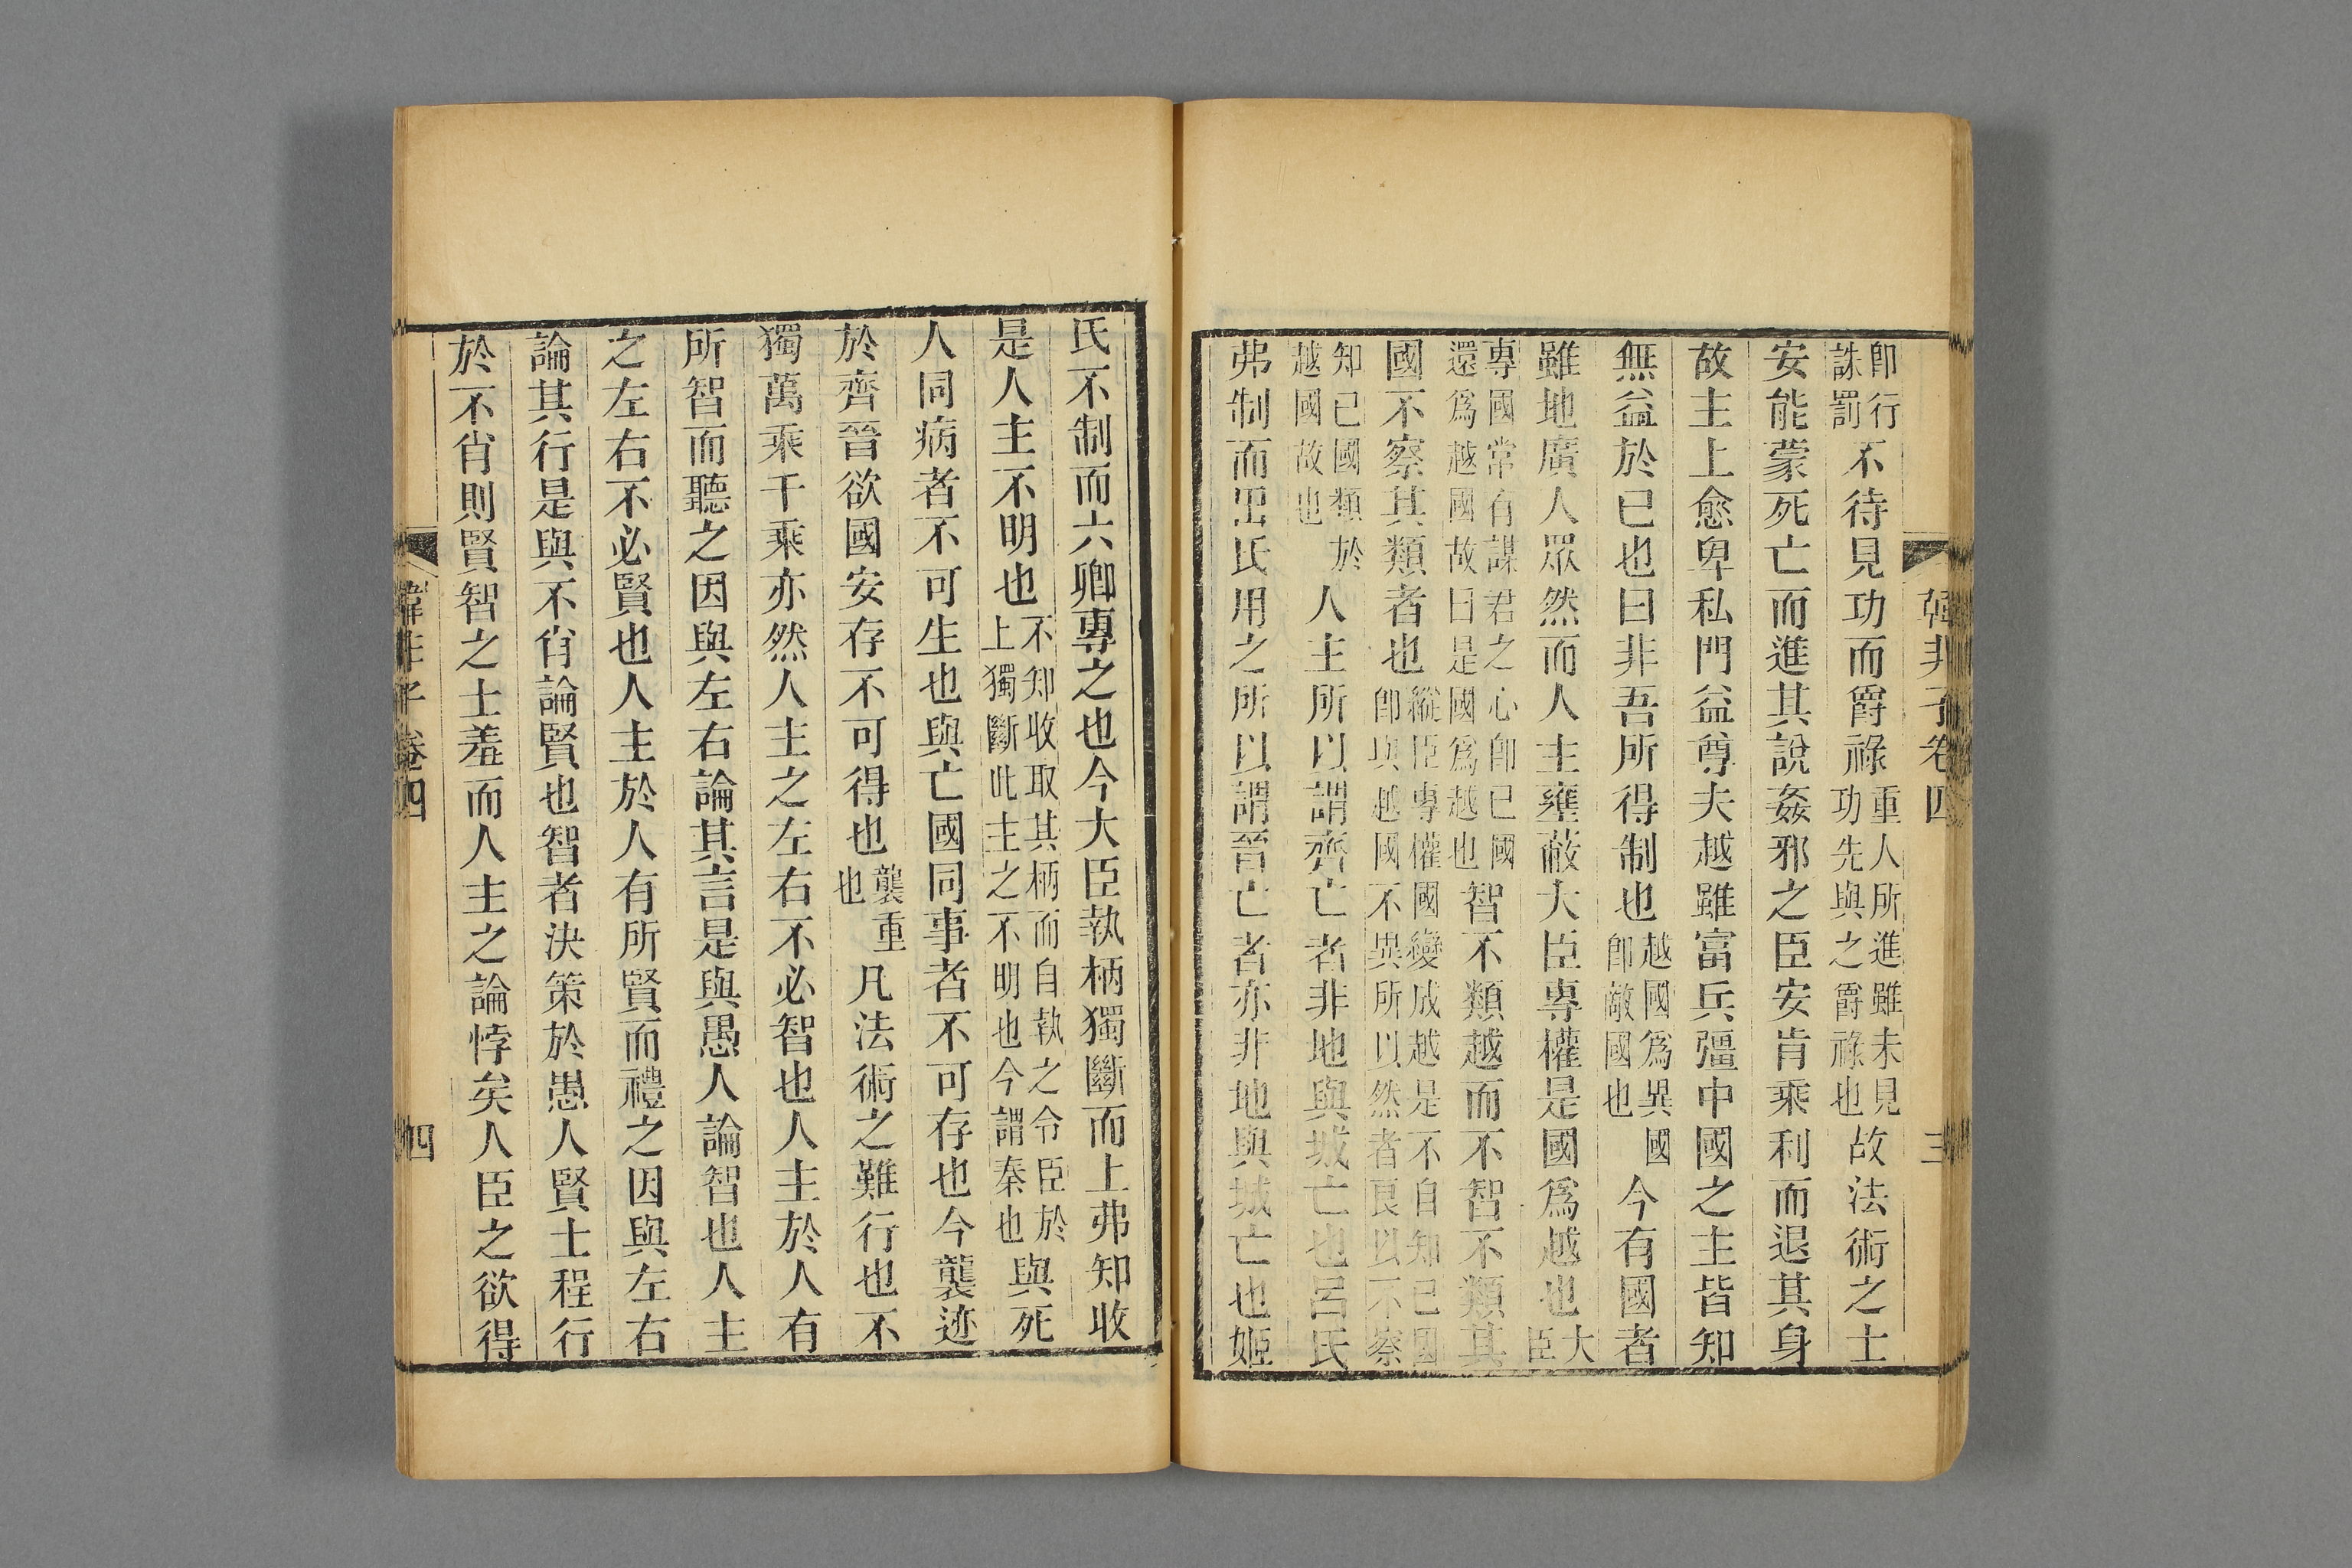 韓非子卷四 三
卽行誅罰不待見功而爵祿重人所進雖未見功先與之爵祿也故法術之士
安能蒙死亡而進其說姦邪之臣安肯乘利而退其身
故主上愈卑私門益尊夫越雖富兵彊中國之主皆知
無益於已也曰非吾所得制也越國爲異國卽敵國也今有國者
雖地廣人眾然而人主壅蔽大臣專權是國爲越也大臣
專國常有謀君之心卽已國還爲越國故曰是國爲越也智不類越而不智不類其
國不察其類者也縱臣專權國變成越是不自知已國卽與越國不異所以然者良以不察
知已國類於越國故也人主所以謂齊亡者非地與城亡也呂氏
弗制而田氏用之所以謂晉亡者亦非地與城亡也姬
氏不制而六卿專之也今大臣執柄獨斷而上弗知收
是人主不明也不知收取其柄而自執之令臣於上獨斷此主之不明也今謂秦也與死
人同病者不可生也與亡國同事者不可存也今襲迹
於齊晉欲國安存不可得也襲重也凡法術之難行也不
獨萬乘千乘亦然人主之左右不必智也人主於人有
所智而聽之因與左右論其言是與愚人論智也人主
之左右不必賢也人主於人有所賢而禮之因與左右
論其行是與不肖論賢也智者決策於愚人賢士程行
於不肖則賢智之士羞而人主之論悖矣人臣之欲得
韓非子卷四 四